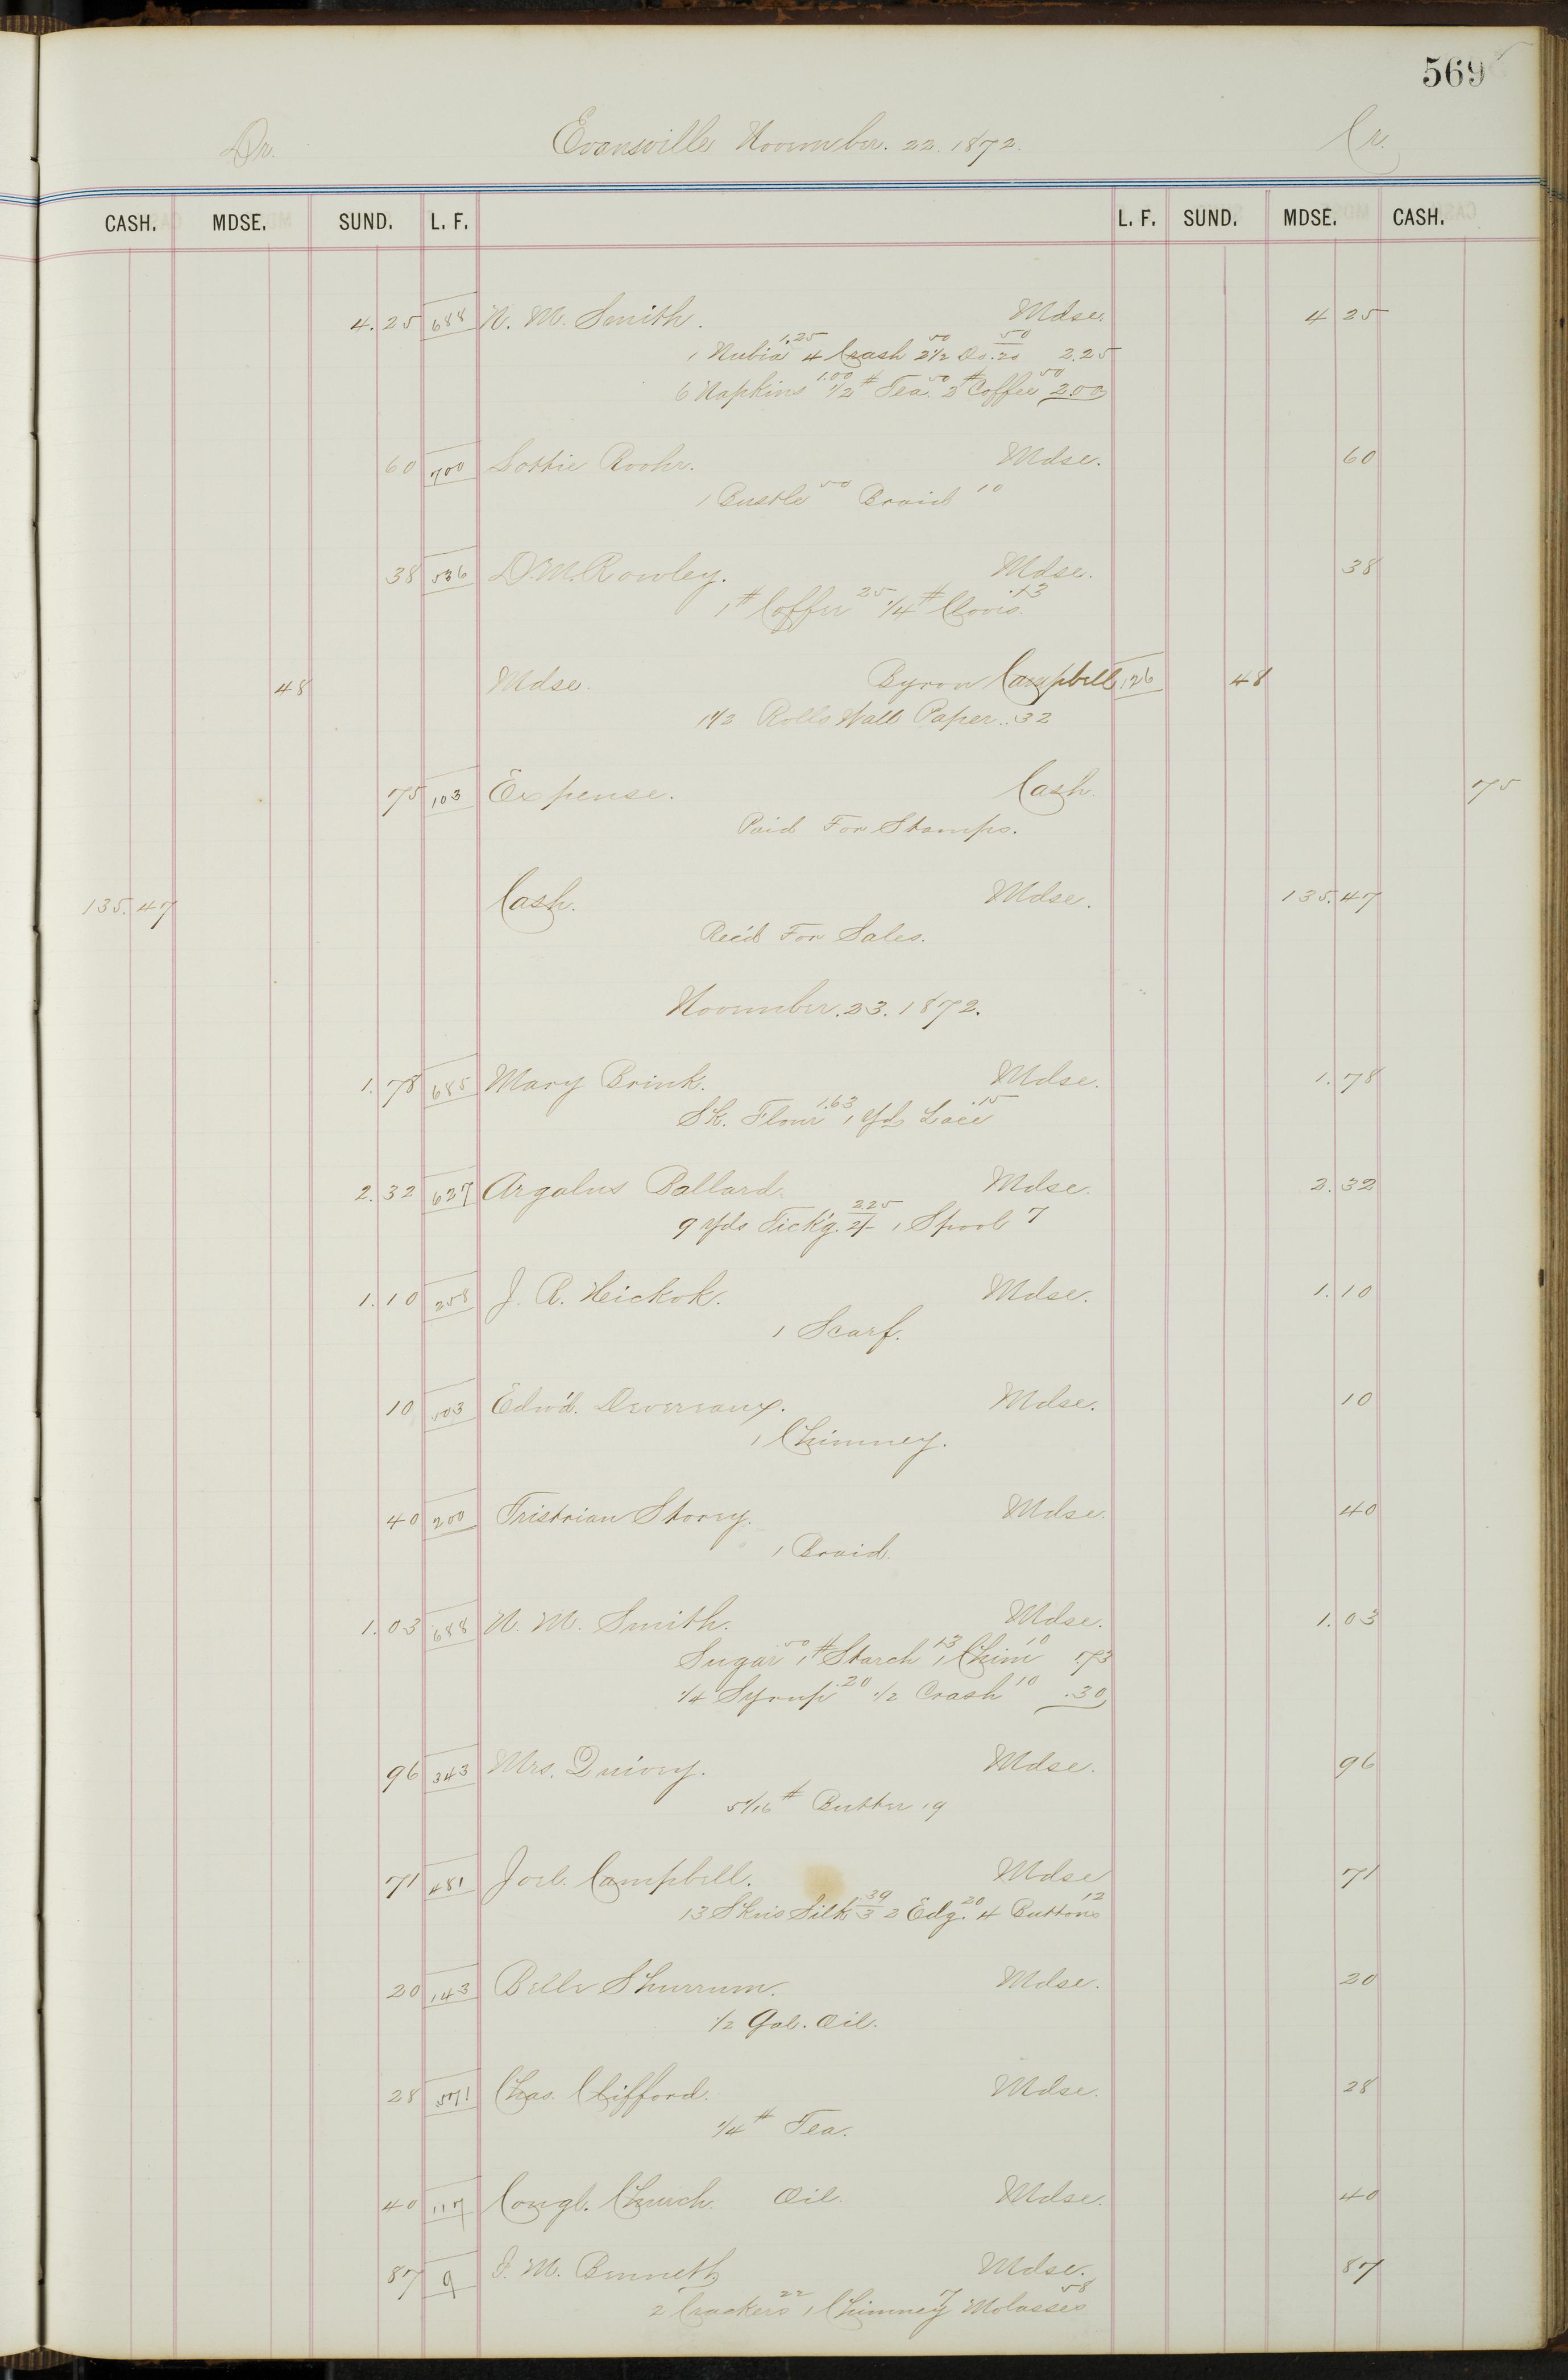 569
Dr. Evansville November. 22. 1872. Cr.
CASH. MDSE. SUND. L. F. L. F. SUND. MDSE. CASH.
4.25 688 N. M. Smith. Mdse. 4 25
1 Nubia 1.25 4 Crash 50 2 1/2 Do. 20 50 2.25
6 Napkins 1.00 1/2 # Tea. 50 2 # Coffee 50 2.00
60 700 Lottie Roohr. Mdse. 60
1 Bustle 50 Braid 10
38 536 D. M. Rowley. Mdse. 38
1 # Coffee 25 1/4 # Cloves. .13
48 Mdse. Byron Campbell 126 48
1 1/2 Rolls Wall Paper. .32
75 103 Expense. Cash. 75
Paid For Stamps.
135.47 Cash. Mdse. 135.47
Rec'd For Sales.
November. 23. 1872.
1.78 685 Mary Brink. Mdse. 1.78
Sk. Flour 1.63 1 Yd Lace .15
2.32 627 Argalus Ballard. Mdse. 2.32
9 Yds Tick'g. 2/- 2.25 1 Spool 7
1.10 258 J. R. Heickok. Mdse. 1.10
1 Scarf.
10 503 Edw'd. Devereaux. Mdse. 10
1 Chimney.
40 200 Tristrian Storey. Mdse. 40
1 Braid.
1.03 688 N. M. Smith. Mdse. 1.03
Sugar 50 1 # Starch 13 1 Chim 10 .73
1/4 Syrup .20 1/2 Crash 10 .30
96 343 Mrs. Quivey. Mdse. 96
5 1/16 # Butter 19
71 481 Joel. Campbell. Mdse 71
13 Skns Silk 3 .39 2 Edg. 20 4 Buttons 12
20 143 Belle Shurrum. Mdse. 20
1/2 Gal. Oil.
28 571 Chas. Clifford. Mdse. 28
1/4 # Tea.
40 117 Congl. Church. Oil. Mdse. 40
87 9 I. M. Bennett Mdse. 87
2 Crackers 22 1 Chimney 7 Molasses 58